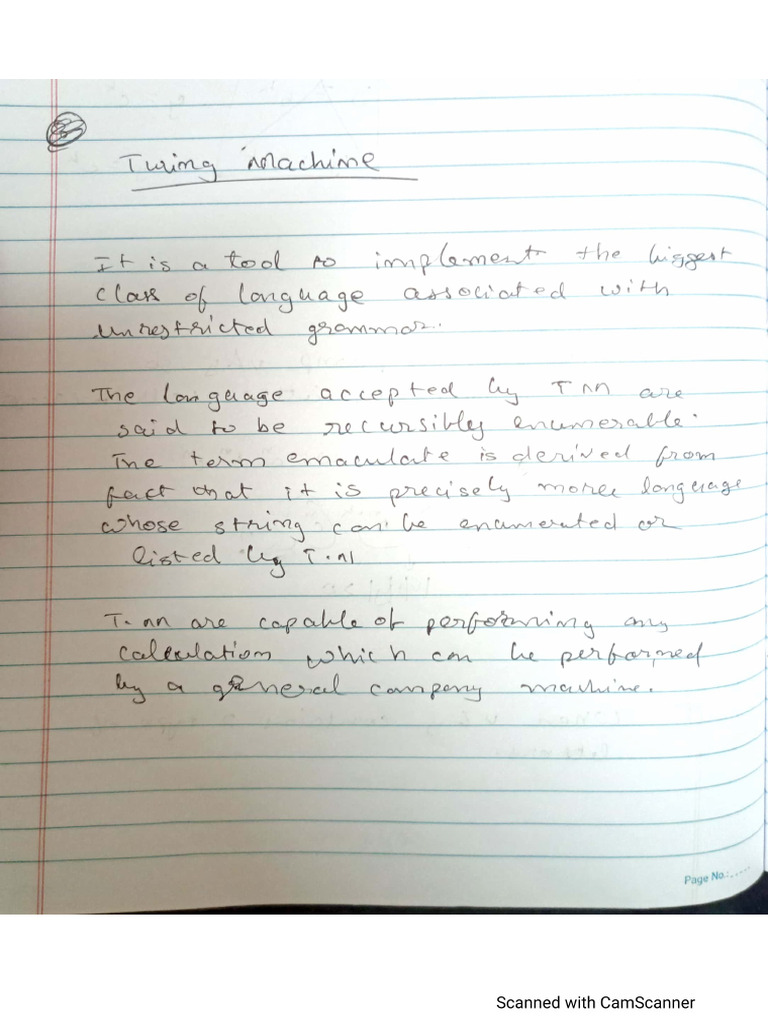 Turing Machine
It is a tool to implement the biggest
class of language associated with
unrestricted grammar.
The language accepted by TM are
said to be recursibly enumerable.
The term emaculate is derived from
fact that it is precisely more language
whose string can be enumerated or
listed by T.M
T.M are capable of performing any
calculation which can be performed
by a general company machine.
Page No.:.....
Scanned with CamScanner